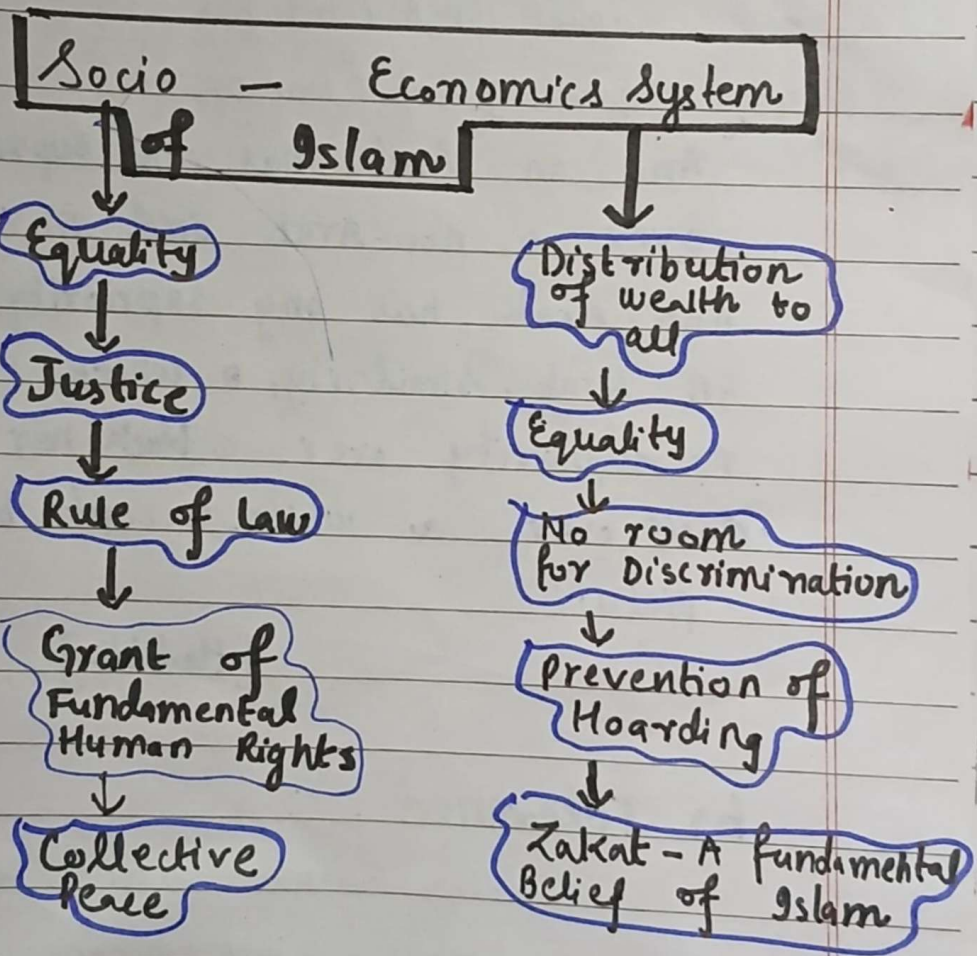 Socio - Economics System
of Islam
Equality
Justice
Rule of Law
Grant of
Fundamental
Human Rights
Collective
Peace
Distribution
of wealth to
all
Equality
No room
for Discrimination
Prevention of
Hoarding
Zakat - A fundamental
Belief of Islam